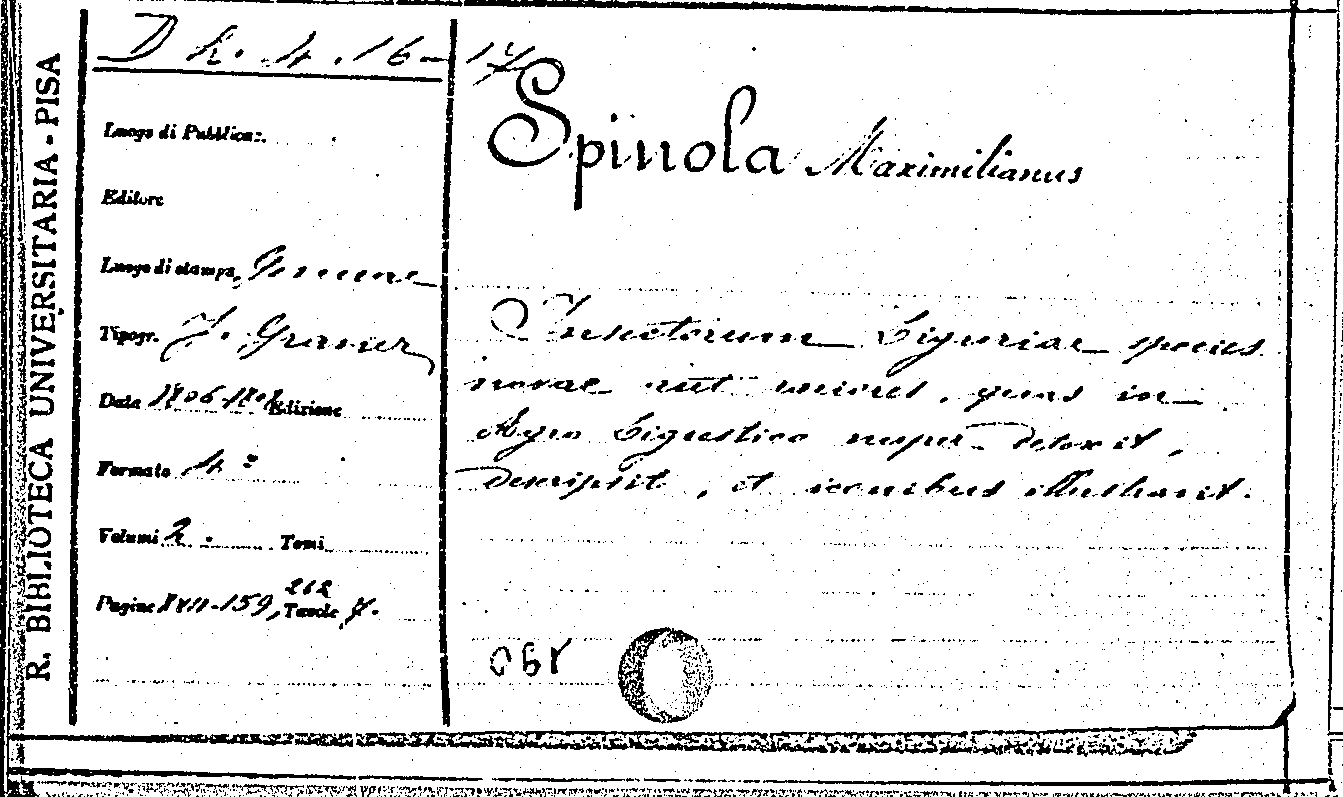 R. BIBLIOTECA UNIVERSITARIA - PISA
D h. 4. 16-17
Luogo di Pubblicaz.
Editore
Luogo di stampa Genuae
Tipogr. J. Gravier
Data 1806-1808 Edizione
Formato 4°
Volumi 2. Tomi
Pagine XVII-159, 262 Tavole 7.
Spinola Maximilianus
Insectorum Liguriae species
novae aut rariores, quas in
Agro Ligustico nuper detexit,
descripsit, et iconibus illustravit.